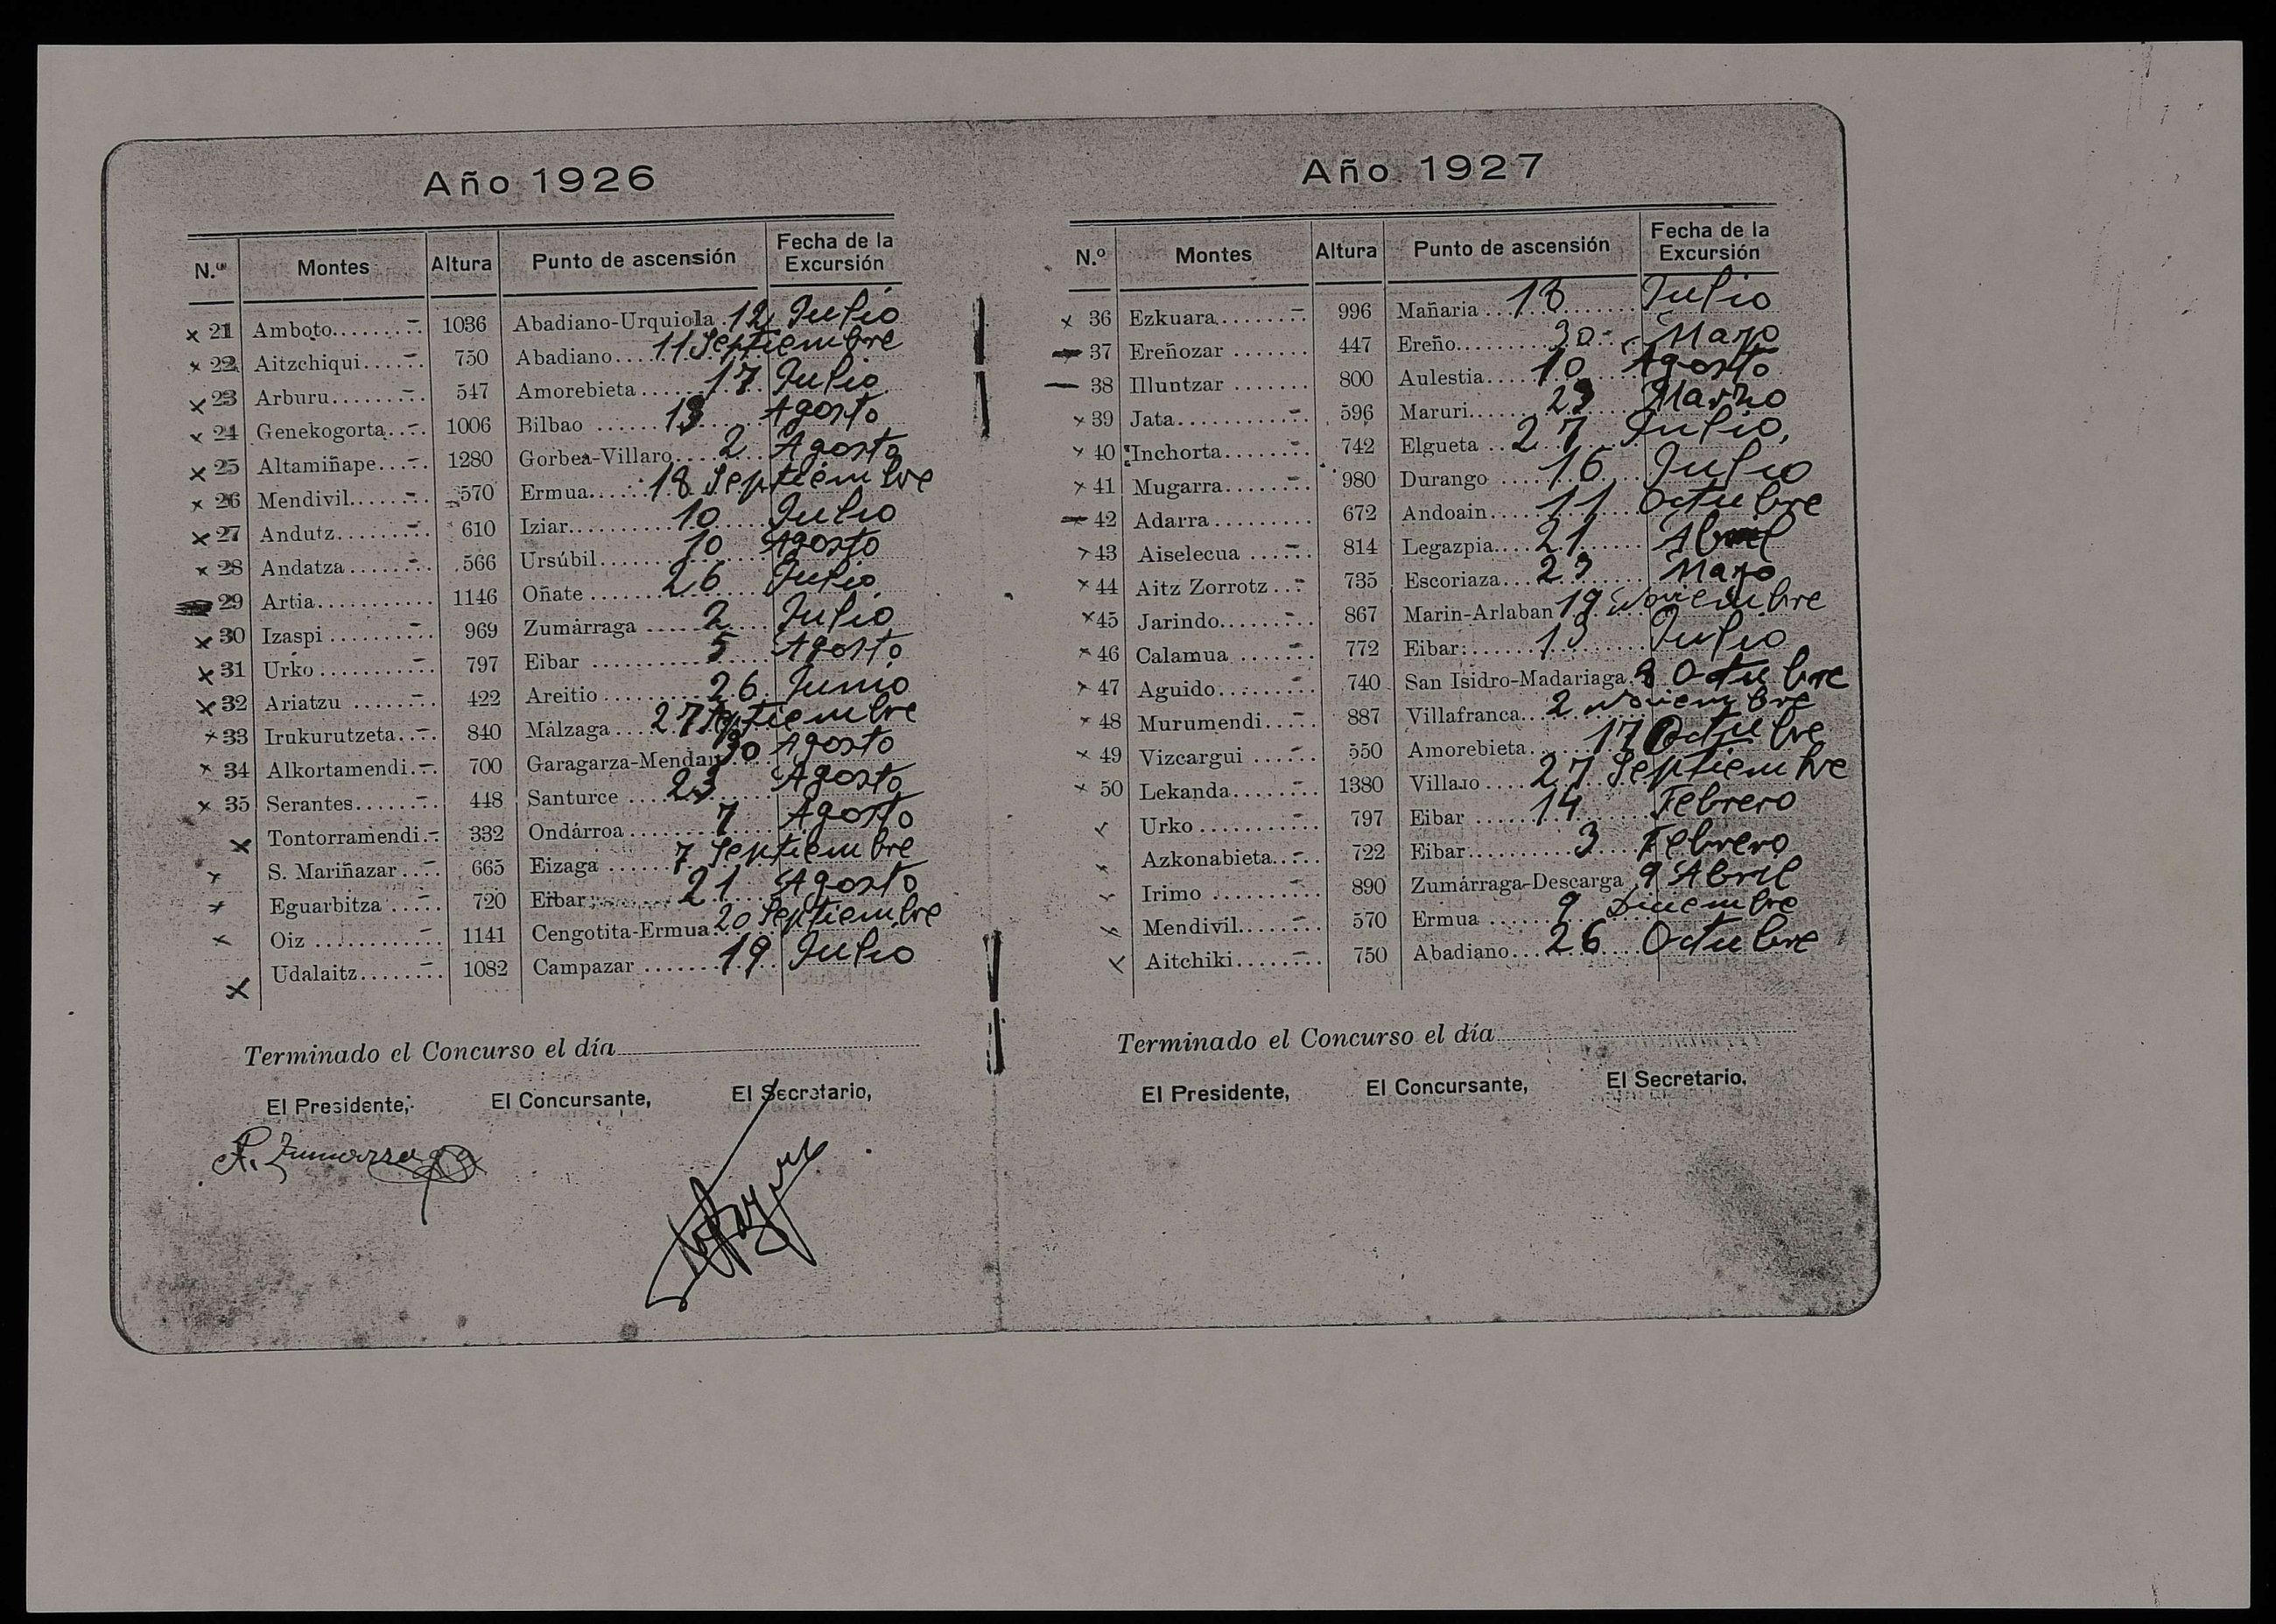 Año 1926
N.º Montes Altura Punto de ascensión Fecha de la Excursión
x 21 Amboto........ 1036 Abadiano-Urquiola 12 Julio
x 22 Aitzchiqui...... 750 Abadiano.... 11 Septiembre
x 23 Arburu......... 547 Amorebieta ...... 17 Julio
x 24 Genekogorta.... 1006 Bilbao ...... 13 Agosto
x 25 Altamiñape..... 1280 Gorbea-Villaro.... 2 Agosto
x 26 Mendivil....... 570 Ermua..... 18 Septiembre
x 27 Andutz......... 610 Iziar.......... 10 Julio
x 28 Andatza ........ 566 Ursúbil........ 10 Agosto
29 Artia........... 1146 Oñate ...... 26 Julio
x 30 Izaspi .......... 969 Zumárraga ..... 2 Julio
x 31 Urko ........... 797 Eibar .......... 5 Agosto
x 32 Ariatzu ........ 422 Areitio ........ 26 Junio
x 33 Irukurutzeta.... 840 Málzaga .... 27 Septiembre
x 34 Alkortamendi... 700 Garagarza-Mendaro 30 Agosto
x 35 Serantes....... 448 Santurce .... 23 Agosto
x Tontorramendi.. 332 Ondárroa........ 7 Agosto
x S. Mariñazar .... 665 Eizaga ...... 7 Septiembre
x Eguarbitza ..... 720 Eibar ...... 21 Agosto
x Oiz ............ 1141 Cengotita-Ermua.. 20 Septiembre
x Udalaitz........ 1082 Campazar ....... 19 Julio
Terminado el Concurso el día
El Presidente, El Concursante, El Secretario,
Año 1927
N.º Montes Altura Punto de ascensión Fecha de la Excursión
x 36 Ezkuara........ 996 Mañaria ... 18 Julio
37 Ereñozar ....... 447 Ereño........ 30 Mayo
38 Illuntzar ....... 800 Aulestia.... 10 Agosto
x 39 Jata........... 596 Maruri...... 23 Marzo
x 40 Inchorta........ 742 Elgueta .. 27 Julio,
x 41 Mugarra........ 980 Durango .... 16 Julio
42 Adarra ......... 672 Andoain.... 11 Octubre
x 43 Aiselecua ...... 814 Legazpia.... 21 Abril
x 44 Aitz Zorrotz ... 735 Escoriaza... 23 Mayo
x 45 Jarindo........ 867 Marin-Arlaban 19 Noviembre
x 46 Calamua ....... 772 Eibar....... 13 Julio
x 47 Aguido......... 740 San Isidro-Madariaga. 8 Octubre
x 48 Murumendi..... 887 Villafranca.. 2 Noviembre
x 49 Vizcargui ...... 550 Amorebieta..... 17 Octubre
x 50 Lekanda........ 1380 Villaro .... 27 Septiembre
x Urko ........... 797 Eibar ...... 14 Febrero
x Azkonabieta..... 722 Eibar.......... 3 Febrero
x Irimo .......... 890 Zumárraga-Descarga 9 Abril
x Mendivil........ 570 Ermua ...... 9 Diciembre
x Aitchiki........ 750 Abadiano... 26 Octubre
Terminado el Concurso el día
El Presidente, El Concursante, El Secretario,